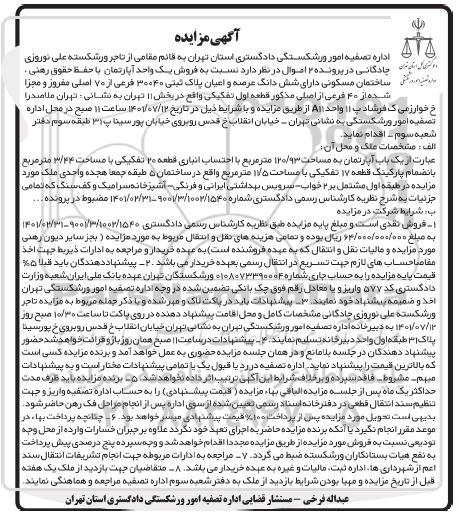 آگهی مزایده
اداره تصفیه امور ورشکستگی دادگستری استان تهران به قائم مقامی از تاجر ورشکسته علی نوروزی
چادگانی در پرونده ۲ اموال در نظر دارد نسبت به فروش یک واحد آپارتمان با حفظ حقوق رهنی ،
ساختمان مسکونی دارای شش دانگ عرصه و اعیان پلاک ثبتی ۳۰۰۴۰ فرعی از ۷۰ اصلی مفروز و مجزا
شده از ۴۰ فرعی از اصلی مذکور قطعه اول تفکیکی واقع در بخش ۱۱ تهران به نشانی : تهران ملاصدرا
خ خوارزمی ک فرشاد پ ۱۱ واحد A۱۱ از طریق مزایده و با شرایط ذیل در تاریخ ۱۴۰۱/۰۷/۱۲ ساعت ۱۱ صبح در محل اداره
تصفیه امور ورشکستگی به نشانی تهران – خیابان انقلاب خ قدس روبروی خیابان پورسینا پ ۳۱ طبقه سوم دفتر
شعبه سوم – اقدام نماید.
الف : مشخصات ملک و محل آن :
عبارت از یک باب آپارتمان به مساحت ۱۲۰/۹۳ مترمربع با احتساب انباری قطعه ۲۰ تفکیکی با مساحت ۳/۴۴ مترمربع
بانضمام پارکینگ قطعه ۱۷ تفکیکی با مساحت ۱۱/۵ مترمربع واقع در ساختمان ۵ طبقه جمعا هجده واحدی ملک مورد
مزایده در طبقه اول مشتمل بر ۲ خواب– سرویس بهداشتی ایرانی و فرنگی– آشپزخانه سرامیک و کف سنگ که تمامی
جزئیات به شرح نظریه کارشناس رسمی دادگستری شماره ۹۰۰۱/۳/۱۰۰۲۱۵۴۰–۱۴۰۱/۰۲/۳۱ مضبوط در پرونده ...
ب: شرایط شرکت در مزایده
۱– فروش نقدی است و مبلغ پایه مزایده طبق نظریه کارشناس رسمی دادگستری ۹۰۰۱/۳/۱۰۰۲۱۵۴۰–۱۴۰۱/۰۲/۳۱
به مبلغ ۶۴/۰۰۰/۰۰۰/۰۰۰ ریال بوده و تمامی هزینه های نقل و انتقال مربوط به مورد مزایده ( بجز سایر دیون رهنی
مورد مزایده و مالیات نقل و انتقال که به عهده فروشنده است) به عهده خریدار و مراجعه به ادارات ذیربط جهت اخذ
مفاصاحساب های لازم جهت تسریع در انتقال رسمی بعهده خریدار می باشد. ۲– پیشنهاددهندگان باید قبلا ۵%
قیمت پایه مزایده را به حساب جاری شماره ۰۱۰۸۰۷۳۳۹۰۰۰۴ ورشکستگان تهران عهده بانک ملی ایران شعبه وزارت
دادگستری کد ۵۷۷ واریز و یا معادل رقم فوق چک بانکی تضمین شده در وجه اداره تصفیه امور ورشکستگی تهران
اخذ و ضمیمه پیشنهاد خود نمایند. ۳– پیشنهادات باید در پاکت لاک و مهر شده و با ذکر جمله مربوط به مزایده تاجر
ورشکسته علی نوروزی چادگانی مشخصات کامل و محل اقامت پیشنهاد دهنده در روی پاکت تا ساعت ۱۰/۳۰ صبح روز
۱۴۰۱/۰۷/۱۲ به دبیرخانه اداره تصفیه امور ورشکستگی تهران به نشانی تهران خیابان انقلاب خ قدس روبروی خ پورسینا
پلاک ۳۱ طبقه اول واحد دبیرخانه تسلیم نمایند. ۴– پیشنهادات در ساعت ۱۱ صبح همان روز باز و قرائت خواهد شد حضور
پیشنهاد دهندگان در جلسه بلامانع و در همان جلسه مزایده حضوری به عمل خواهد آمد و برنده مزایده کسی است
که بالاترین قیمت را پیشنهاد نماید. اداره تصفیه در رد یا قبول یک یا تمامی پیشنهادات مختار است و به پیشنهادات
مبهم – مشروط – فاقد سپرده و برخلاف شرایط این آگهی ترتیب اثر داده نخواهد شد. ۵– برنده مزایده باید ظرف مدت
حداکثر یک ماه پس از جلسه مزایده الباقی بهای مزایده ( قیمت پیشنهادی ) را به حساب اداره تصفیه واریز و جهت
تنظیم سند انتقال قطعی در دفترخانه اسناد رسمی تعیین شده از سوی اداره پس از انجام مراحل فک رهن حاضر شود.
بدیهی است تحویل مورد مزایده پس از پرداخت ۱۰۰% قیمت پیشنهادی میسر خواهد بود. ۶– چنانچه پرداخت بها، در
موعد مقرر انجام نگیرد یا آنکه برنده مزایده حاضر به اجرای تعهد خود نگردد علاوه بر جبران خسارات وارده از محل وجه
تودیعی نسبت به فروش مورد مزایده از طریق مزایده مجددا اقدام خواهد شد و وجه سپرده پنج درصدی پیش پرداخت
به نفع هیات بستانکاران ورشکسته ضبط می گردد. ۷– مراجعه به ادارات مربوطه جهت انجام تشریفات انتقال سند
اعم از شهرداری ها ، اداره ثبت، مالیات و غیره به عهده خریدار می باشد. ۸– متقاضیان جهت بازدید از ملک یک هفته
قبل از تاریخ مزایده و مهیا بودن شرایط بازدید از ملک به دفتر شعبه سوم اداره تصفیه مراجعه و هماهنگی نمایند.
عبداله فرخی – مستشار قضایی اداره تصفیه امور ورشکستگی دادگستری استان تهران